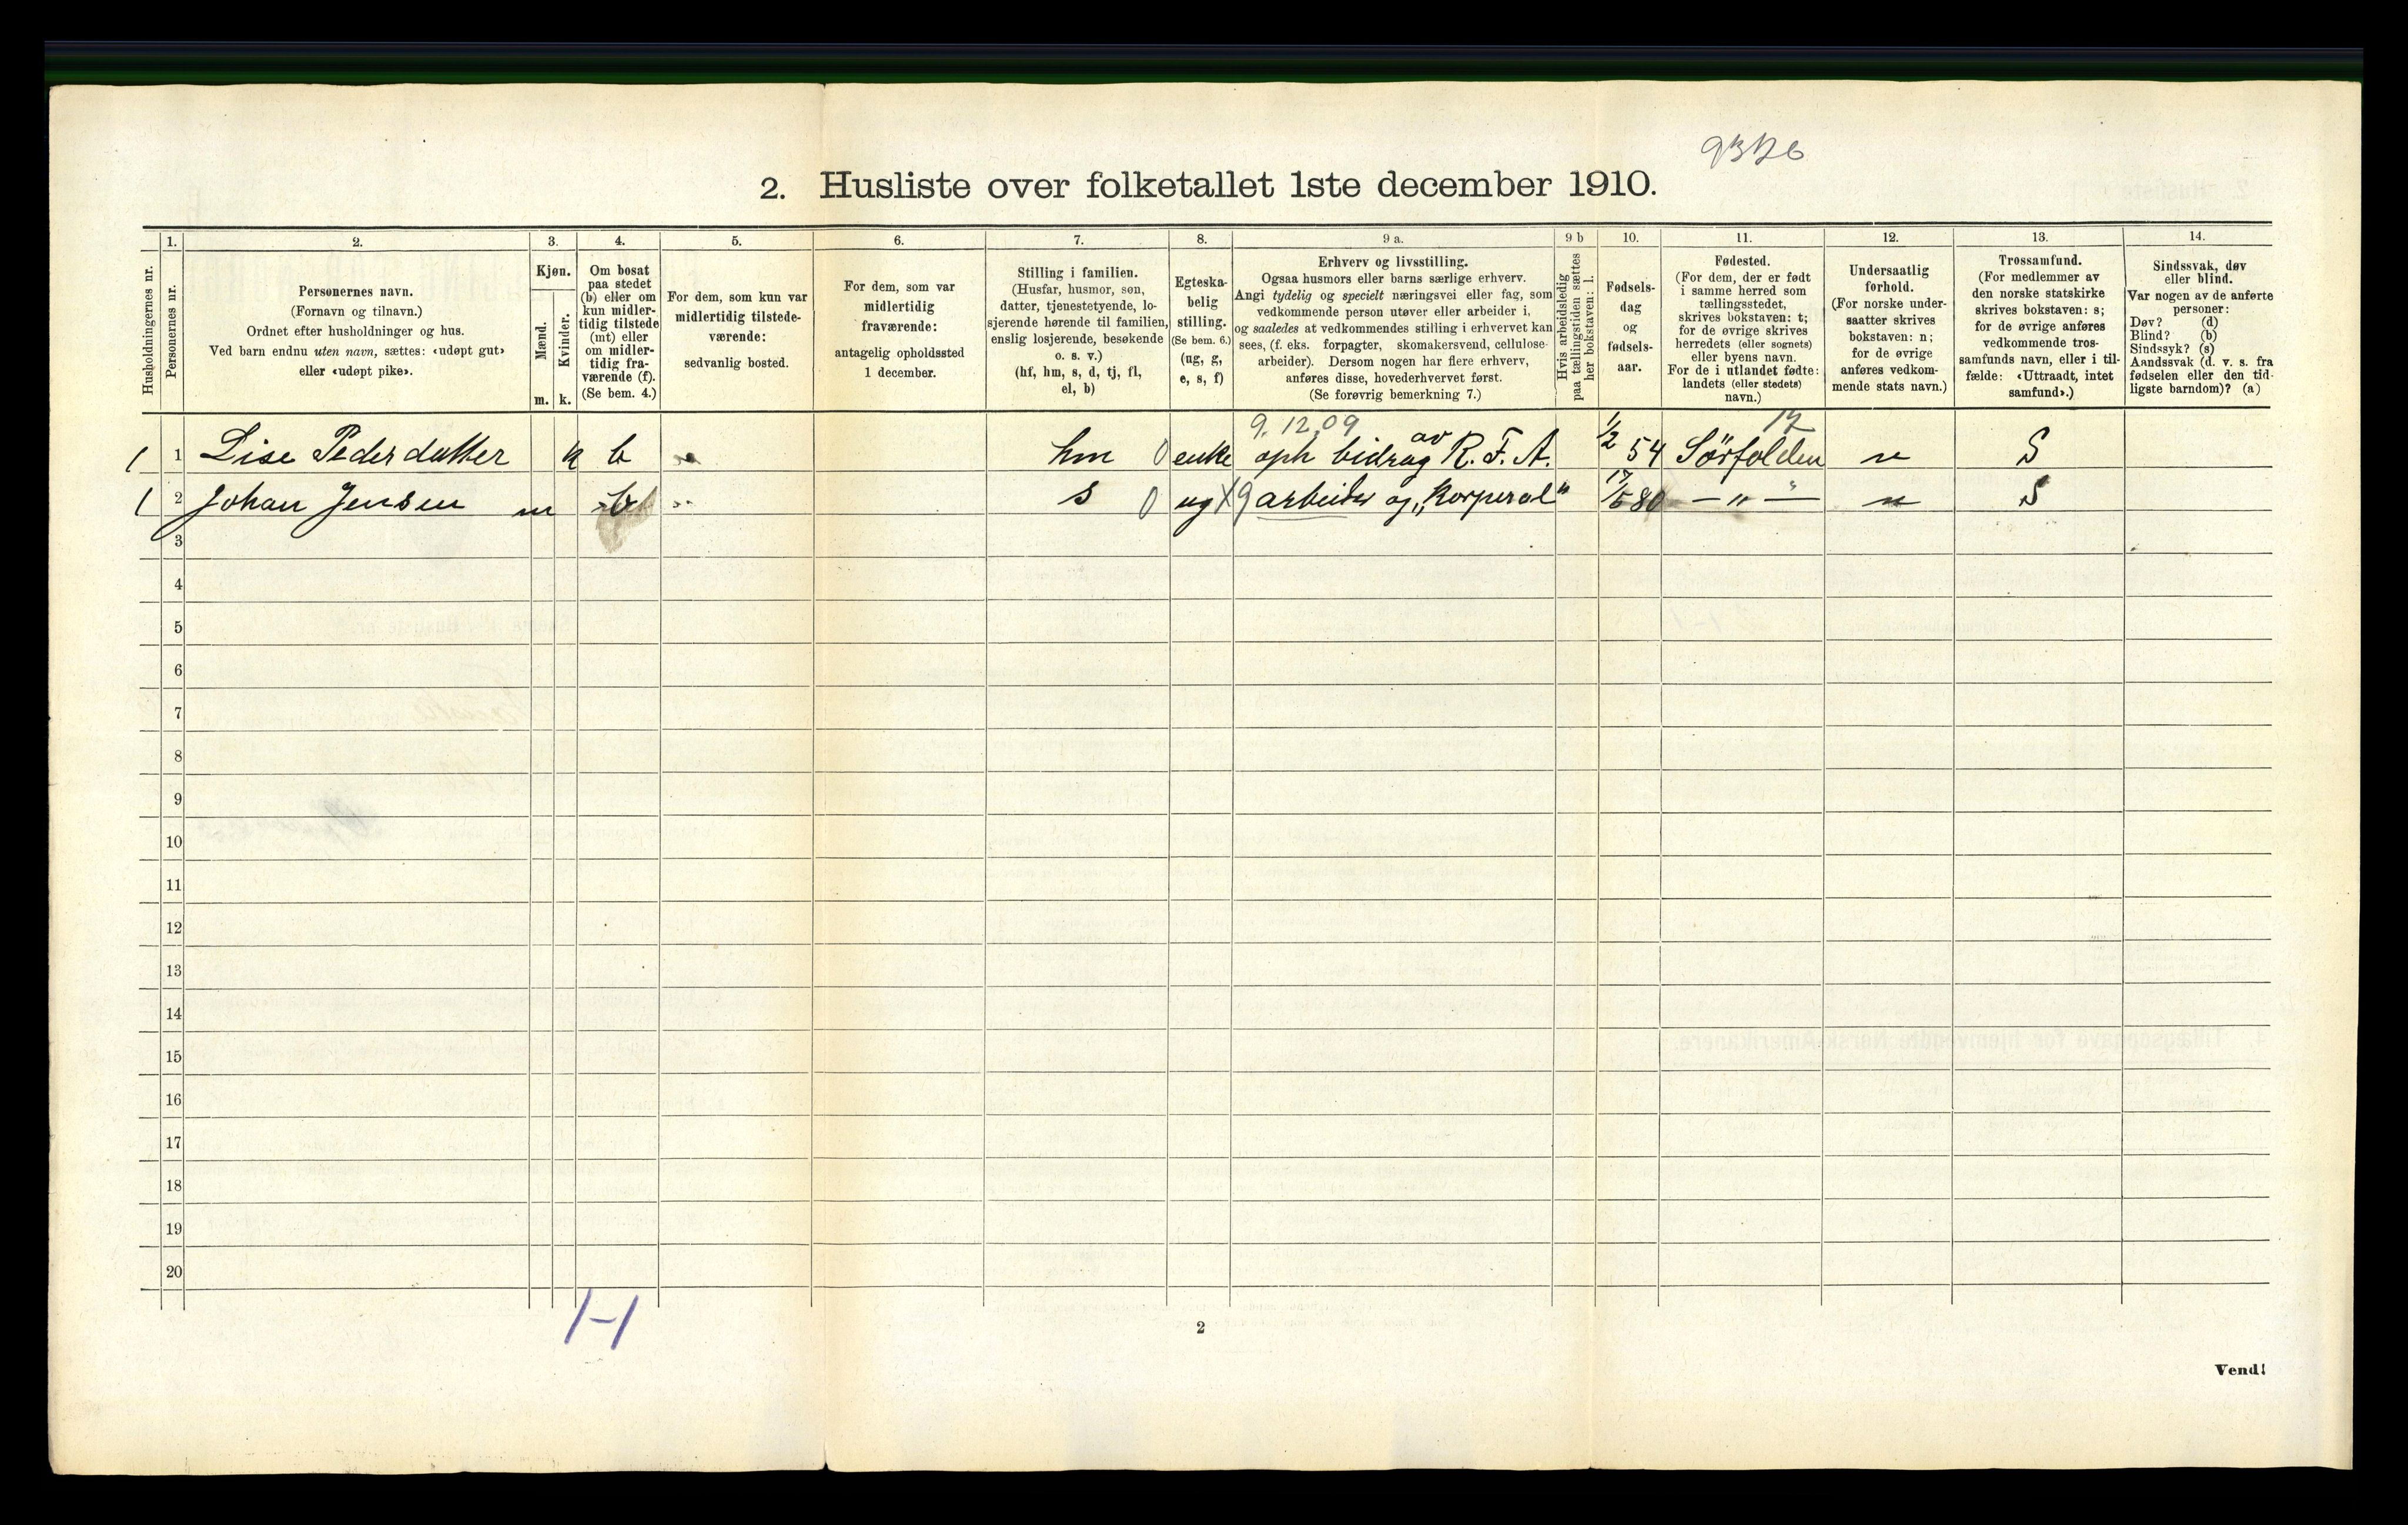 2. Husliste over folketallet 1ste december 1910.
Husholdningernes nr.
1.
Personernes nr.
2.
Personernes navn.
(Fornavn og tilnavn.)
Ordnet efter husholdninger og hus.
Ved barn endnu uten navn, sættes: «udøpt gut»
eller «udøpt pike».
3.
Kjøn.
Mænd.
Kvinder.
m. k.
4.
Om bosat
paa stedet
(b) eller om
kun midler-
tidig tilstede
(mt) eller
om midler-
tidig fra-
værende (f).
(Se bem. 4.)
5.
For dem, som kun var
midlertidig tilstede-
værende:
sedvanlig bosted.
6.
For dem, som var
midlertidig
fraværende:
antagelig opholdssted
1 december.
7.
Stilling i familien.
(Husfar, husmor, søn,
datter, tjenestetyende, lo-
sjerende hørende til familien,
enslig losjerende, besøkende
o. s. v.)
(hf, hm, s, d, tj, fl,
el, b)
8.
Egteska-
belig
stilling.
(Se bem. 6.)
(ug, g,
e, s, f)
9 a.
Erhverv og livsstilling.
Ogsaa husmors eller barns særlige erhverv.
Angi tydelig og specielt næringsvei eller fag, som
vedkommende person utøver eller arbeider i,
og saaledes at vedkommendes stilling i erhvervet kan
sees, (f. eks. forpagter, skomakersvend, cellulose-
arbeider). Dersom nogen har flere erhverv,
anføres disse, hovederhvervet først.
(Se forøvrig bemerkning 7.)
9 b
Hvis arbeidsledig
paa tællingstiden sættes
her bokstaven: l.
10.
Fødsels-
dag
og
fødsels-
aar.
11.
Fødested.
(For dem, der er født
i samme herred som
tællingsstedet,
skrives bokstaven: t;
for de øvrige skrives
herredets (eller sognets)
eller byens navn.
For de i utlandet fødte:
landets (eller stedets)
navn.)
12.
Undersaatlig
forhold.
(For norske under-
saatter skrives
bokstaven: n;
for de øvrige
anføres vedkom-
mende stats navn.)
13.
Trossamfund.
(For medlemmer av
den norske statskirke
skrives bokstaven: s;
for de øvrige anføres
vedkommende tros-
samfunds navn, eller i til-
fælde: «Uttraadt, intet
samfund».)
14.
Sindssvak, døv
eller blind.
Var nogen av de anførte
personer:
Døv? (d)
Blind? (b)
Sindssyk? (s)
Aandssvak (d. v. s. fra
fødselen eller den tid-
ligste barndom)? (a)
9.12.09
1 1 Lise Pedersdatter k b hm 0 enke oph bidrag av R. F. A. 1/2 54 Sörfolden n S
1 2 Johan Jensen m b s 0 ug arbeider og „Korperal" 80 — „ — n S
3
4
5
6
7
8
9
10
11
12
13
14
15
16
17
18
19
20
1-1
2
Vend!